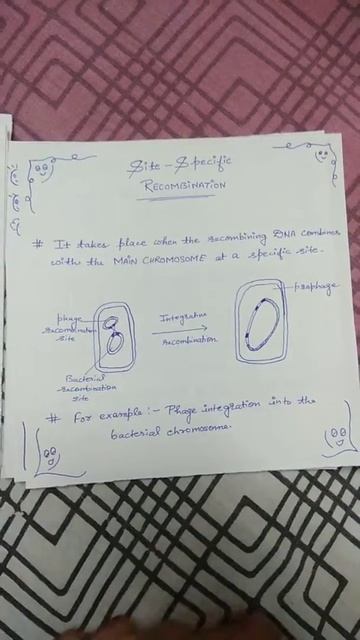 Site-Specific
RECOMBINATION
# It takes place when the recombining DNA combines
with the MAIN CHROMOSOME at a specific site.
phage
recombination
site
Bacterial
recombination
site
Integrative
recombination
prophage
# For example:- Phage integration into the
bacterial chromosome.